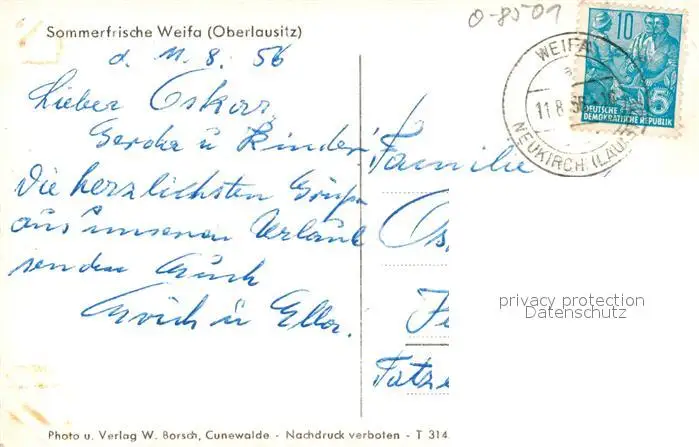 O-8501
Sommerfrische Weifa (Oberlausitz)
d. 11.8.56
Lieber Oskar,
Gerda u Kinder!
Die herzlichsten Grüße
aus unserem Urlaub
senden Euch
Erich u Ella.
Familie
Os
Fe
10
5
DEUTSCHE
DEMOKRATISCHE REPUBLIK
WEIFA
11.8.56
NEUKIRCH (LAUSITZ)
privacy protection
Datenschutz
Photo u. Verlag W. Borsch, Cunewalde - Nachdruck verboten - T 314